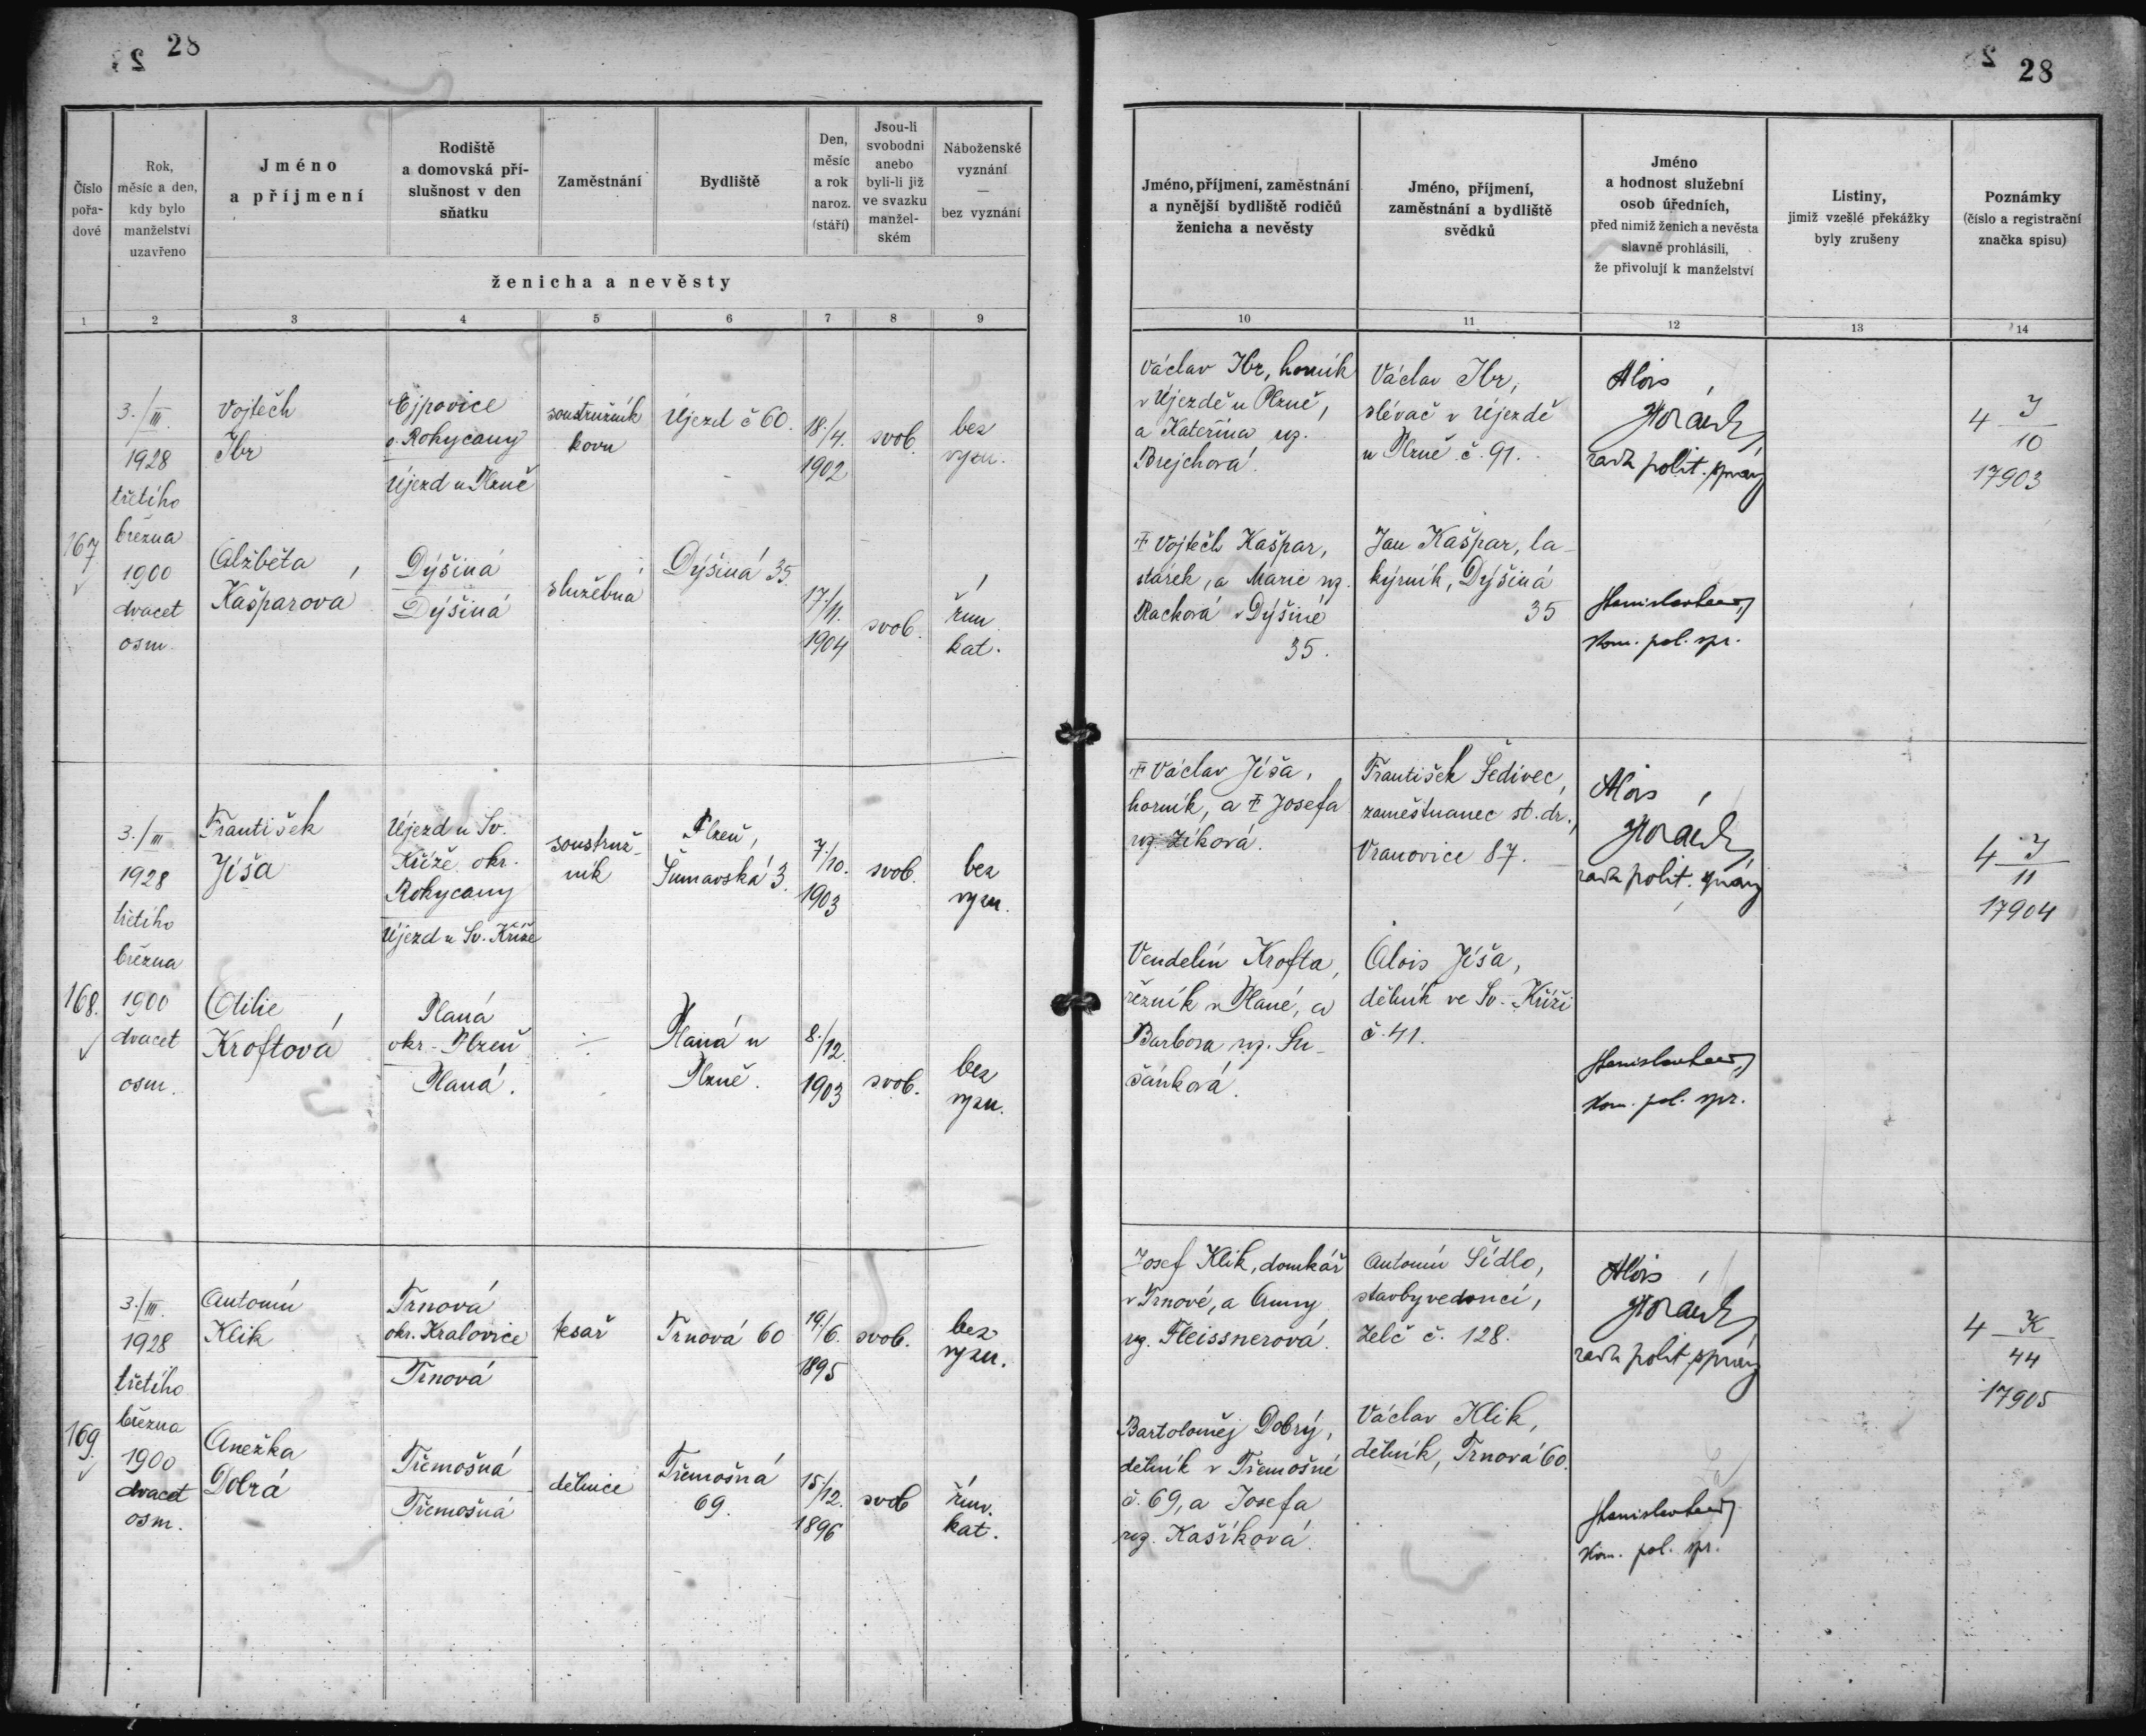 28
28
Číslo
pořa-
dové
Rok,
měsíc a den,
kdy bylo
manželství
uzavřeno
Jméno
a příjmení
Rodiště
a domovská pří-
slušnost v den
sňatku
Zaměstnání
Bydliště
Den,
měsíc
a rok
naroz.
(stáří)
Jsou-li
svobodni
anebo
byli-li již
ve svazku
manžel-
ském
Náboženské
vyznání
—
bez vyznání
ženicha a nevěsty
Jméno, příjmení, zaměstnání
a nynější bydliště rodičů
ženicha a nevěsty
Jméno, příjmení,
zaměstnání a bydliště
svědků
Jméno
a hodnost služební
osob úředních,
před nimiž ženich a nevěsta
slavně prohlásili,
že přivolují k manželství
Listiny,
jimiž vzešlé překážky
byly zrušeny
Poznámky
(číslo a registrační
značka spisu)
1 2 3 4 5 6 7 8 9 10 11 12 13 14
167
3./III.
1928
třetího
března
1900
dvacet
osm.
Vojtěch
Ibr
Ejpovice
o. Rokycany
Újezd u Plzně
soustružník
kovu
Újezd č 60.
18./4.
1902
svob.
bez
vyzn.
Václav Ibr, horník
v Újezdě u Plzně,
a Kateřina roz.
Brejchová.
Václav Ibr,
slévač v Újezdě
u Plzně č. 91.
Alois
Horák,
rada polit. správy
4 I/10
17903
Alžběta
Kašparová
Dýšiná
Dýšiná
služebná
Dýšiná 35.
17./11.
1904
svob.
řím.
kat.
† Vojtěch Kašpar,
stárek, a Marie roz.
Racková v Dýšiné
35.
Jan Kašpar, la-
kýrník, Dýšiná
35
Kom. pol. spr.
168.
3./III
1928
třetího
března
1900
dvacet
osm.
František
Jíša
Újezd u Sv.
Kříže okr.
Rokycany
Újezd u Sv. Kříže
soustruž-
ník
Plzeň,
Šumavská 3.
7./10.
1903
svob.
bez
vyzn.
† Václav Jíša,
horník, a † Josefa
roz. Zíková.
František Šedivec,
zaměstnanec st. dr.,
Vranovice 87.
Alois
Horák,
rada polit. správy
4 J/11
17904
Otilie
Kroftová
Planá
okr. Plzeň
Planá.
÷
Planá u
Plzně.
8./12.
1903
svob.
bez
vyzn.
Vendelín Krofta,
řezník v Plané, a
Barbora roz. Su-
šánková.
Alois Jíša,
dělník ve Sv. Kříži
č. 41.
Kom. pol. spr.
169.
3./III.
1928
třetího
března
1900
dvacet
osm.
Antonín
Klik
Trnová
okr. Kralovice
Trnová
tesař
Trnová 60
19./6.
1895
svob.
bez
vyzn.
Josef Klik, domkář
v Trnové, a Anny
roz. Fleissnerová.
Antonín Šídlo,
stavbyvedoucí,
Zelč č. 128.
Alois
Horák,
rada polit. správy
4 K/44
17905
Anežka
Dobrá
Třemošná
Třemošná
dělnice
Třemošná
69.
15./12.
1896
svob
řím.
kat.
Bartoloměj Dobrý,
dělník v Třemošné
č. 69, a Josefa
roz. Kašíková.
Václav Klik,
dělník, Trnová 60.
Kom. pol. spr.